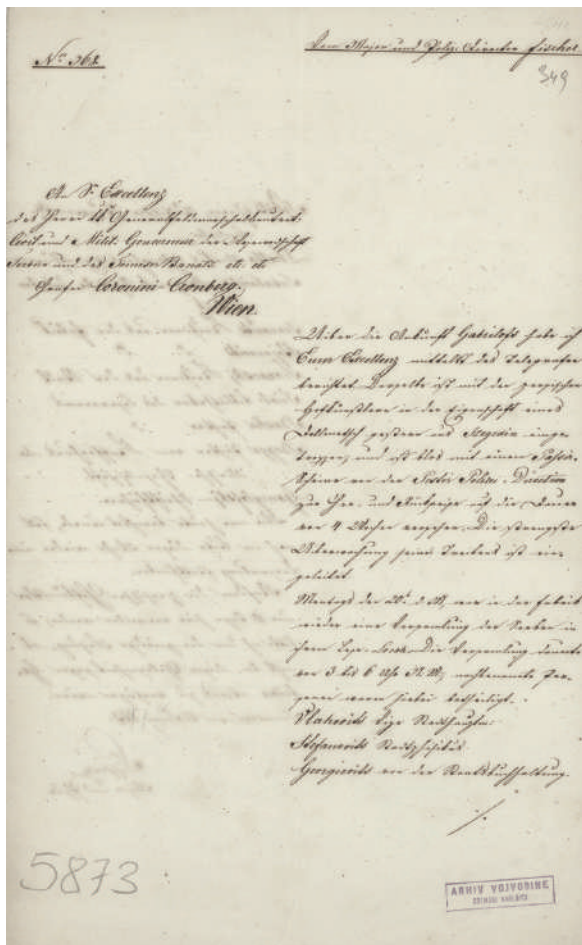 No 368.
Vom Major und Poliz. Director Fischer.
349
An Sr Excellenz
des Herrn kk Generalfeldmarschallieutent.
Civil und Milit. Gouverneur der Woywodschaft
Serbien und des Temeser Banats etc. etc.
Grafen Coronini Cronberg.
Wien.
Über die Ankunft Gabriloffs habe ich
Euer Excellenz mittelst des Telegrafen
berichtet. Derselbe ist mit den persischen
Hofkünstlern in der Eigenschaft eines
Dollmetsch gestern aus Szegedin einge-
troffen, und ist blos mit einem Passir-
Scheine von der Pesther Polizei-Direction
zur Her- und Rückreise auf die Dauer
von 4 Wochen versehen. Die strengste
Überwachung seines Treibens ist ein-
geleitet.
Montags den 20t d M, war in der Fabrik
wieder eine Versammlung der Serben in
ihrem Lese-Die Versammlung dauerte
von 3 bis 6 Uhr N. M., nachbenannte Per-
sonen waren hiebei betheiligt.
Vlahovits Vize Stadthauptm.
Stefanovits Stadtphisikus
Georgievits von der Staatsbuchhaltung.
./.
5873
ARHIV VOJVODINE
SREMSKI KARLOVCI